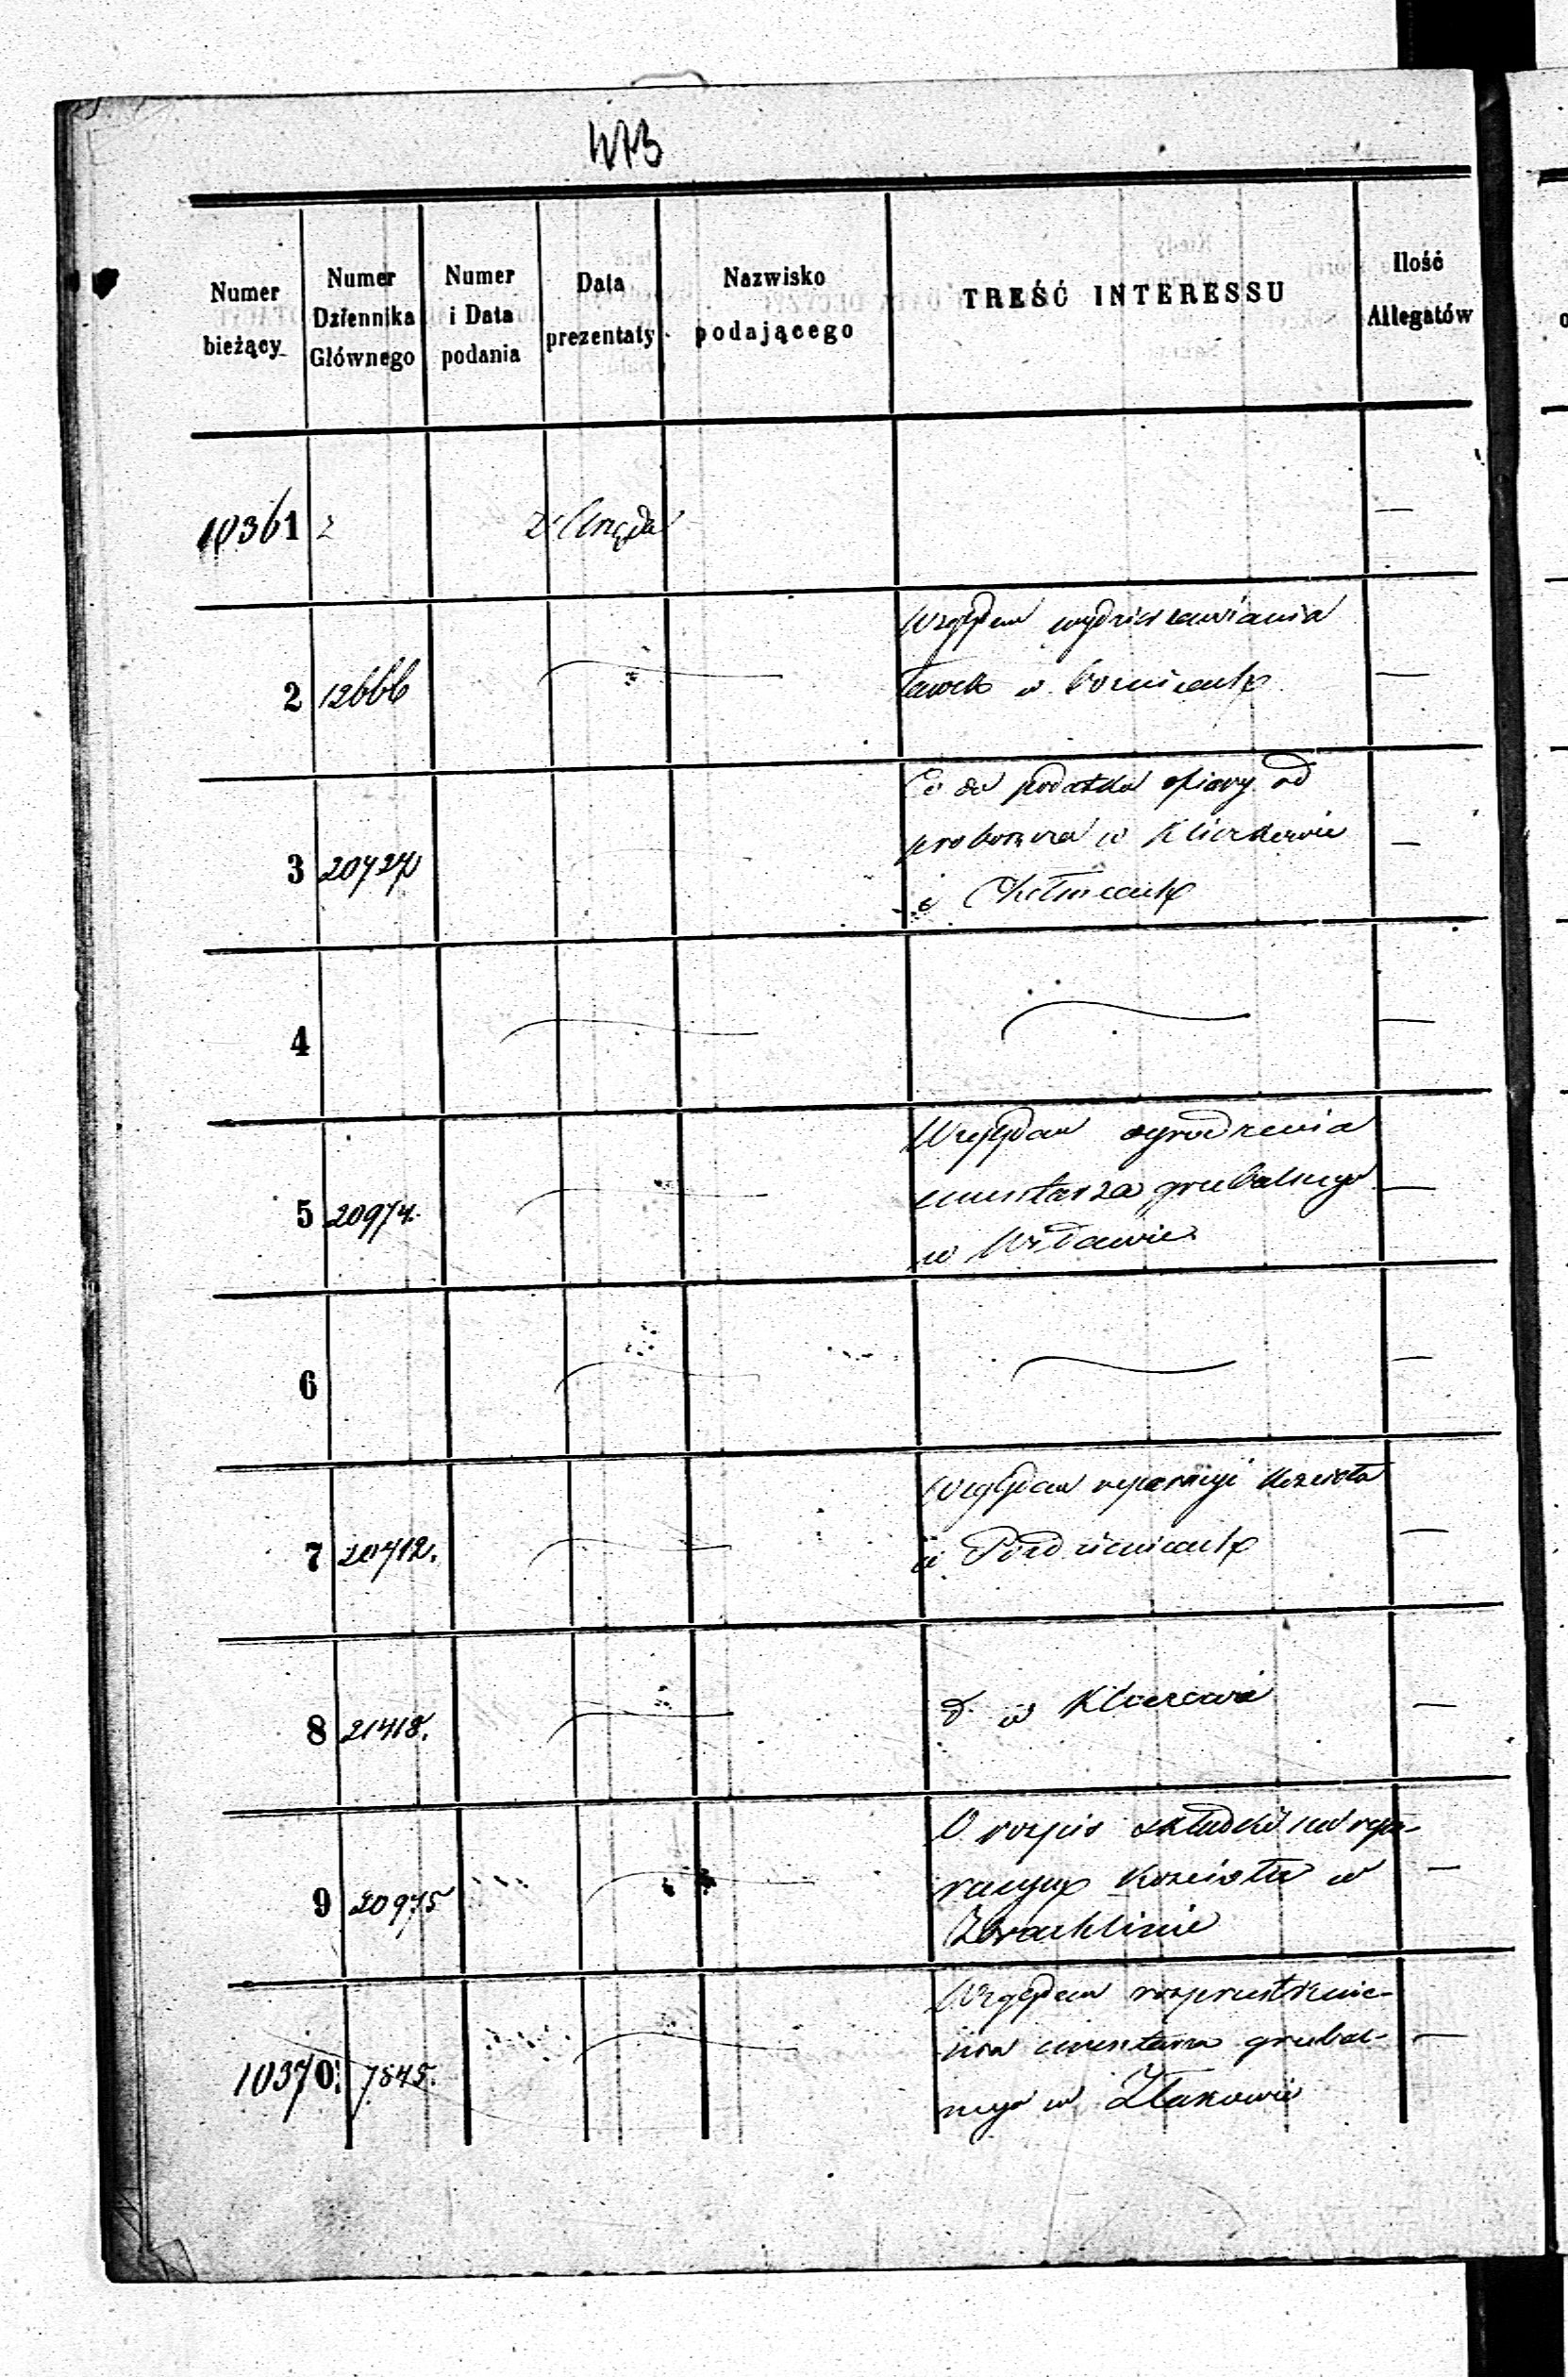 Numer
bieżący
Numer
Dziennika
Głównego
Numer
i Data
podania
Data
prezentaty
Nazwisko
podającego
TREŚĆ INTERESSU
Ilość
Allegatów
10361 z Urzędu —
2 12666 Względem wydzierżawiania —
ławek w
3 Co do podatku ofiary od —
probostwa w
i
4 —
5 20974. Względem ogrodzenia —
cmentarza grzebalnego
w Widawie
6 —
7 20712. Względem reperacyi kościoła —
w
8 21418. d. w —
9 20975 O rozpis składki na repe-
racyę kościoła w —
Zbrachlinie
10370. 7845. Względem rozprzestrzenie-
nia cmentarza grzebal- —
nego w Złakowie